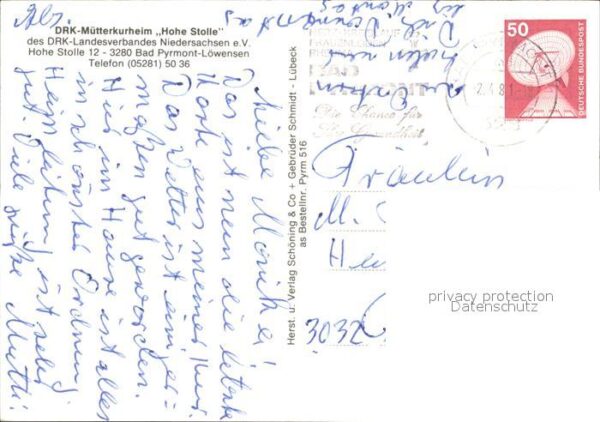 Abs.
DRK-Mütterkurheim „Hohe Stolle"
des DRK-Landesverbandes Niedersachsen e.V.
Hohe Stolle 12 - 3280 Bad Pyrmont-Löwensen
Telefon (05281) 50 36
Meine
Das ist nun die letzte
Karte aus meiner Kur.
Das Wetter ist einiger=
maßen gut geworden.
Hier im Hause ist alles
in schönster Ordnung
Heimleitung ist sehr
gut. Viele Grüße Mutti!
Herst. u. Verlag Schöning & Co + Gebrüder Schmidt - Lübeck
as Bestellnr. Pyrm 516
BAD
PYRMONT
Die Chance für
Ihre Gesundheit
50
DEUTSCHE BUNDESPOST
Fräulein
M.
3032
privacy protection
Datenschutz